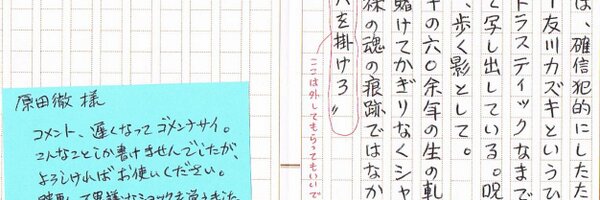 は、確信犯的にしたた
ー友川カズキというひ
ドラスティックなまで
て写し出している。呪
、歩く影として。
賭けてかぎりなくシャ
キの六〇余年の生の軌
裸の魂の痕跡ではなか
を掛けろ〃
ここは外してもらってもいいで
原田徹 様
コメント、遅くなってゴメンナサイ。
こんなことしか書けませんでしたが、
よろしければお使いください。
異様なショックを